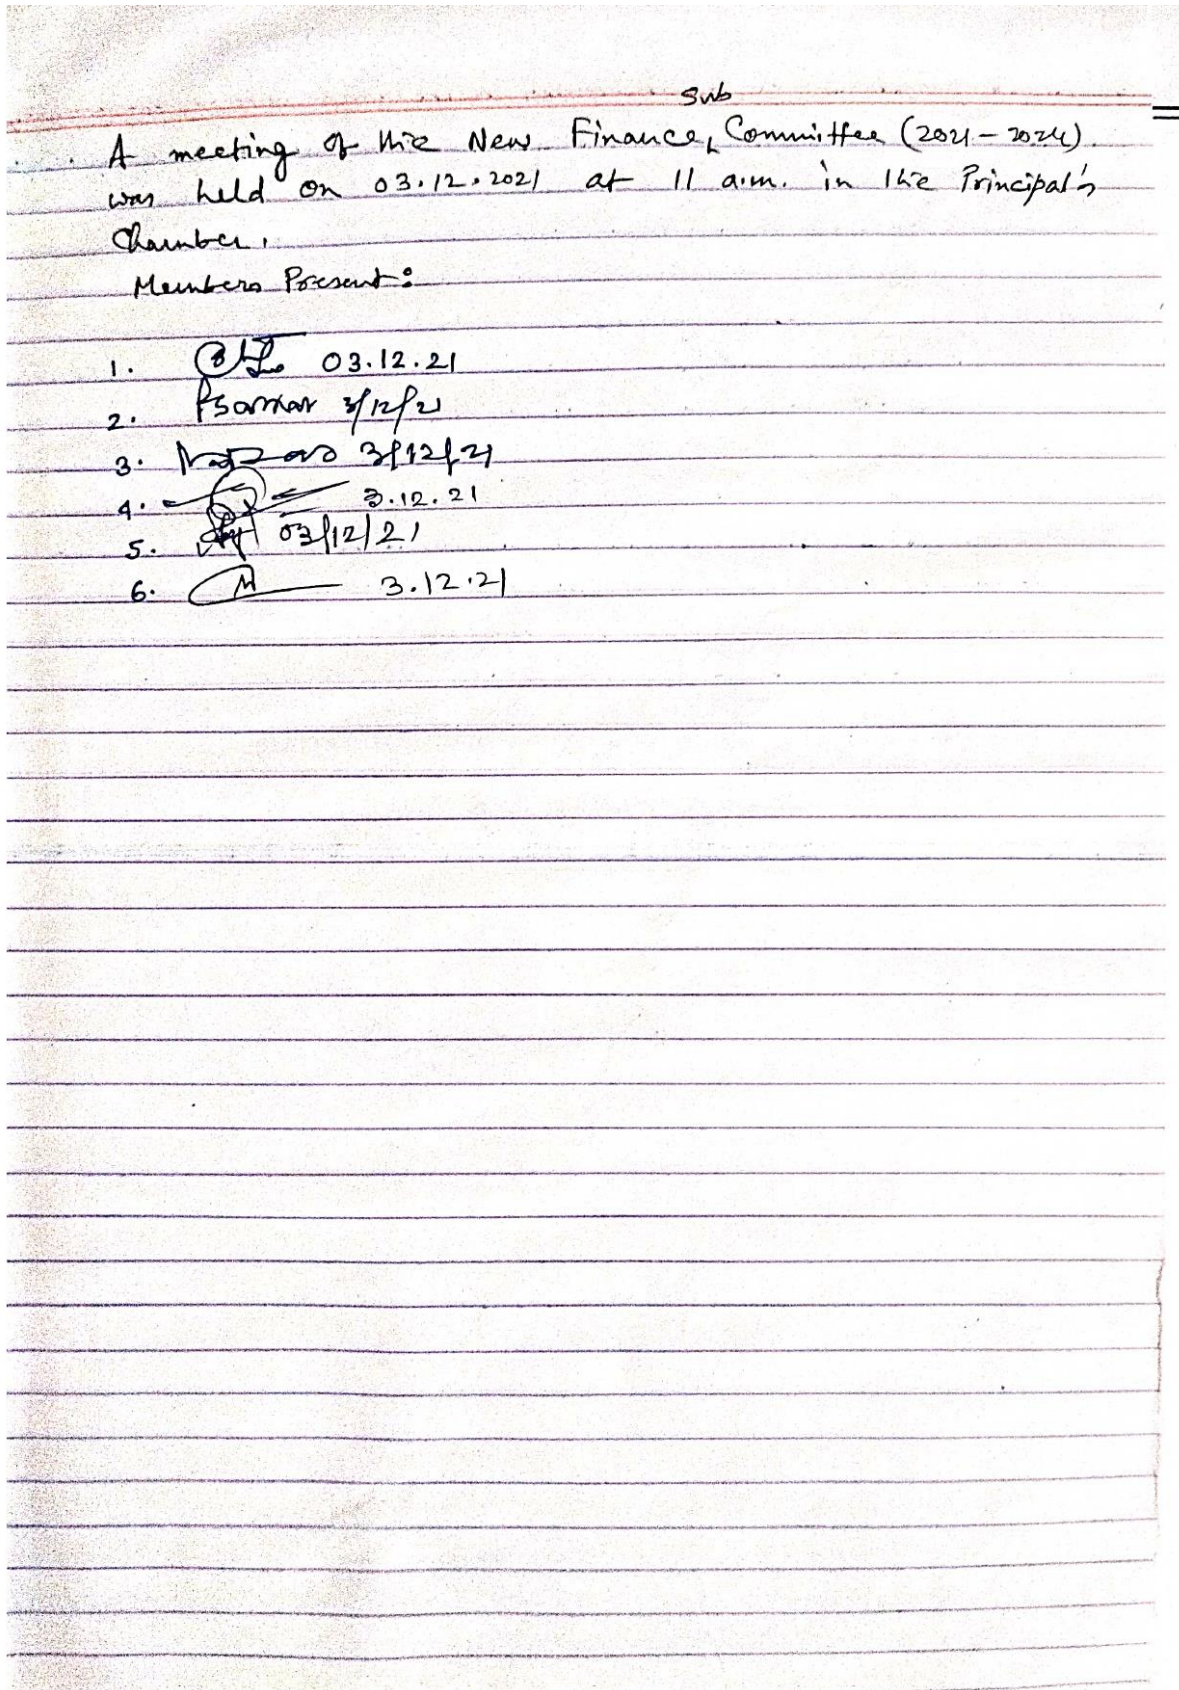 Sub
A meeting of the New Finance Committee (2021-2024)
was held on 03.12.2021 at 11 a.m. in the Principal's
Chamber.
Members Present:
1. 03.12.21
2. 3/12/21
3. 3/12/21
4. 3.12.21
5. 03/12/21
6. 3.12.21